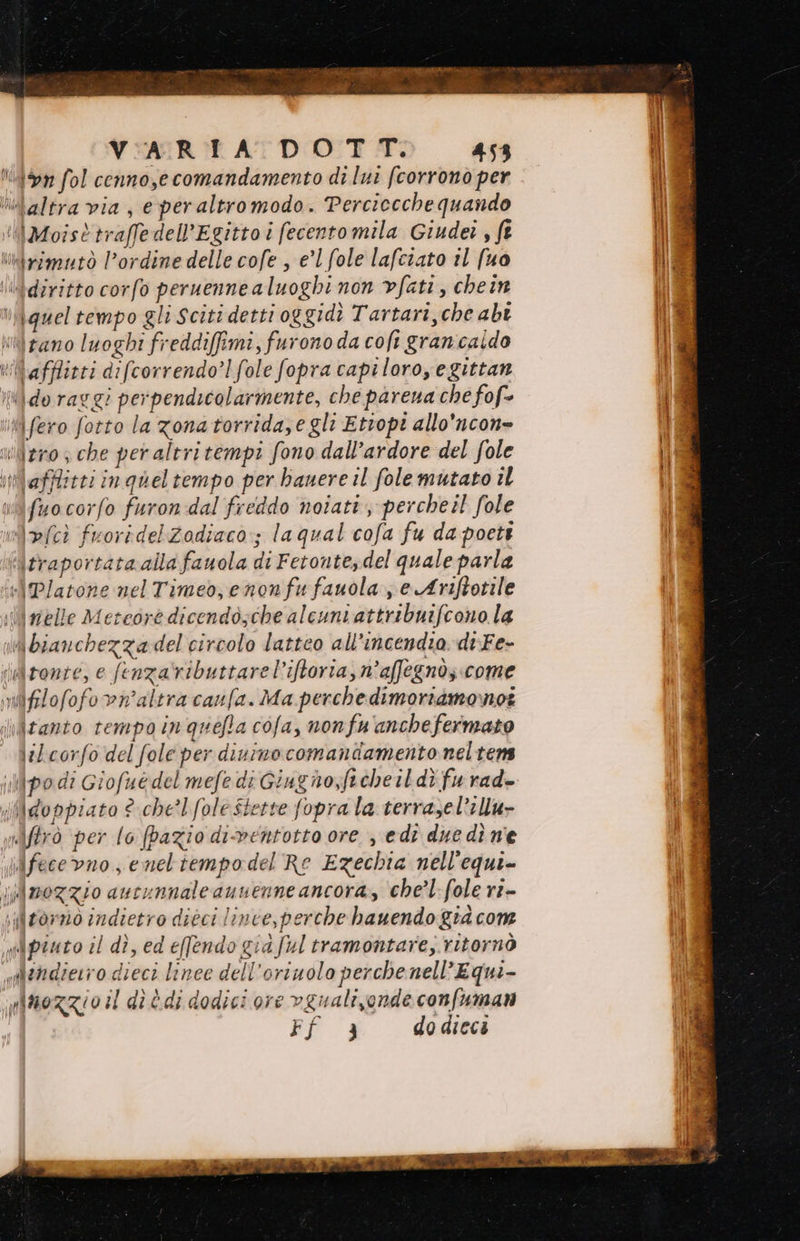 VARIA DOTT. 453
vn ſol cenno, e comandamento di lui ſcorrono per
altra via, e per altro modo. Percioccche quando
Moisè traſſe dell'Egitto i ſecento mila Giudei, ſi
rimutò l'ordine delle coſe, e'l ſole laſciato il ſuo
diritto corſo peruenne a luoghi non vſati, che in
quel tempo gli Sciti detti oggidì Tartari, che abi
tano luoghi freddiſſimi, furono da coſi gran caldo
afflitti diſcorrendo'l ſole ſopra capi loro, e gittan
do raggi perpendicolarmente, che pareua che foſ-
ſero ſotto la zona torrida, e gli Etiopi allo'ncon-
tro, che per altri tempi ſono dall'ardore del ſole
afflitti in quel tempo per hauere il ſole mutato il
ſuo corſo furon dal freddo noiati, perche il ſole
vſcì fuori del Zodiaco; la qual coſa fu da poeti
traportata alla fauola di Fetonte, del quale parla
Platone nel Timeo, e non fu fauola, e Ariſtotile
nelle Meteore dicendo, che alcuni attribuiſcono la
bianchezza del circolo latteo all'incendio di Fe-
tonte, e ſenza ributtare l'iſtoria, n'aſſegnò, come
filoſofo vn'altra cauſa. Ma perche dimoriamo noi
tanto tempo in queſta coſa, non fu anche fermato
il corſo del ſole per diuino comandamento nel tem
po di Gioſuè del meſe di Giugno, ſi che il dì fu rad-
doppiato? che'l ſole ſtette ſopra la terra, e l'illu-
ſtrò per lo ſpazio di ventotto ore, e di due dì ne
fece vno, e nel tempo del Re Ezechia nell'equi-
nozzio autunnale auuenne ancora, che'l ſole ri-
tornò indietro dieci linee, perche hauendo già com
piuto il dì, ed eſſendo già ſul tramontare, ritornò
indietro dieci linee dell'oriuolo perche nell'Equi-
nozzio il dì è di dodici ore vguali, onde conſuman
Ff 3 do dieci